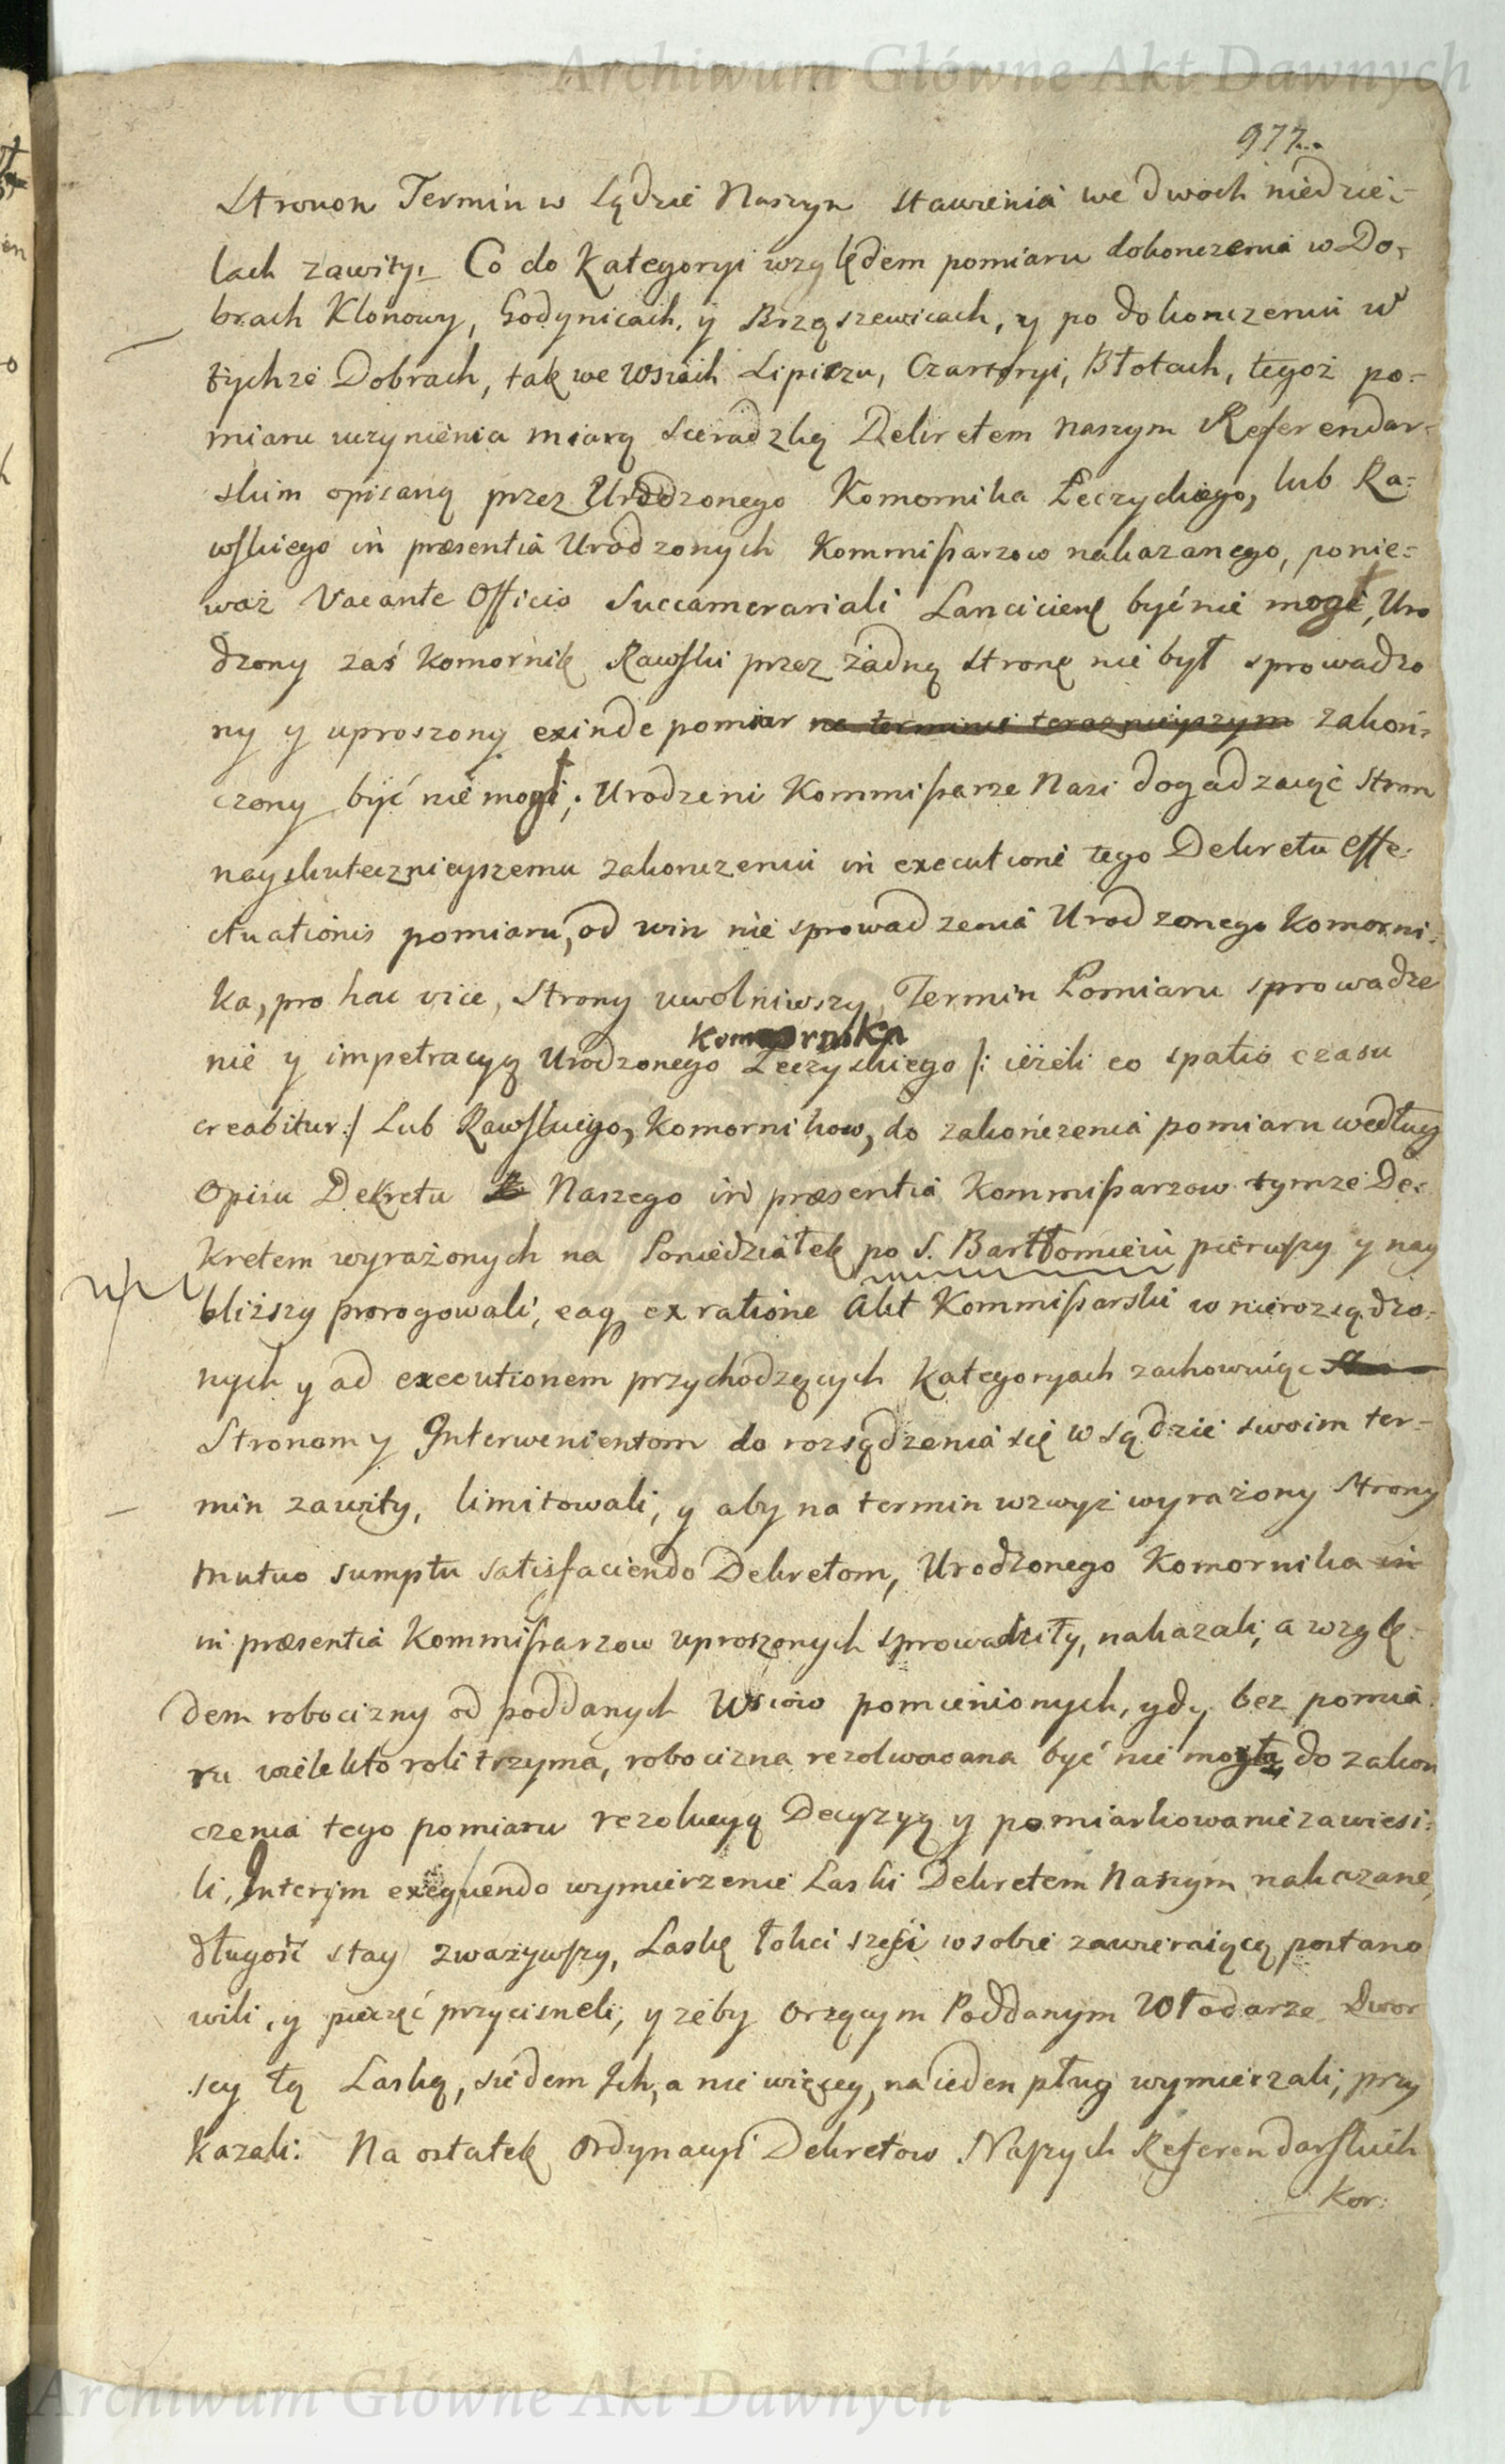 Archiwum Główne Akt Dawnych
977.
Stronom Termin w Sądzie Naszym stawienia we dwoch niedzie-
lach zawity. Co do Kategoryi względem pomiaru dokonczenia w Do-
brach Klonowy, Godynicach, y Brząszewicach, y po dokonczeniu w
tychże Dobrach, tak we Wsiach Lipiczu, Czartoryi, Błotach, tegoż po-
miaru uczynienia miarą Sieradzką Dekretem naszym Referendar-
skim opisaną przez Urodzonego Komornika Łęczyckiego, lub Ra-
wskiego in præsentia Urodzonych Kommissarzow nakazanego, ponie-
waż Vacante Officio Succamerariali Lancicien być nie mogł, Uro
dzony zaś Komornik Rawski przez żadną stronę nie był sprowadzo
ny y uproszony exinde pomiar na terminie teraznieyszym zakoń-
czony być nie mogł; Urodzeni Kommissarze Nasi dogadzaiąc Stron
nayskutecznieyszemu zakonczeniu in executione tego Dekretu effe-
ctuationis pomiaru, od win nie sprowadzenia Urodzonego Komorni-
ka, pro hac vice, Strony uwolniwszy, Termin Pomiaru sprowadze
Komornika
nie y impetracyą Urodzonego Łęczyckiego /: ieżeli eo spatio czasu
creabitur :/ Lub Rawskiego, Komornikow, do zakończenia pomiaru według
Opisu Dekretu Naszego in præsentia Kommissarzow tymże De-
kretem wyrażonych na Poniedziałek po S. Bartłomieiu pierwszy y nay
bliższy prorogowali, eaq ex ratione Akt Kommissarski w nierozsądzo-
nych y ad executionem przychodzących Kategoryach zachowuiąc
Stronom y Interwenientom do rozsądzenia się w Sądzie swoim ter-
min zawity, limitowali, y aby na termin wzwyż wyrażony Strony
mutuo sumptu satisfaciendo Dekretom, Urodzonego Komornika in
in præsentia Kommissarzow uproszonych sprowadziły, nakazali, a wzglę-
dem robocizny od poddanych Wsiow pomienionych, gdy bez pomia
ru wiele kto roli trzyma, robocizna rezolwowana być nie mogła, do zakon
czenia tego pomiaru rezolucyą Decyzyą y pomiarkowanie zawiesi-
li, Interim exequendo wymierzenie Laski Dekretem Naszym nakazane,
długość stay zważywszy, Laskę łokci sześć w sobie zawieraiącą postano
wili, y pieczęć przycisneli, y żeby Orzącym Poddanym Włodarze Dwor
scy tą Laską, siedem Ich, a nie więcey, na ieden pług wymierzali, przy
kazali. Na ostatek Ordynacyi Dekretow Naszych Referendarskich
Kor:
Archiwum Główne Akt Dawnych